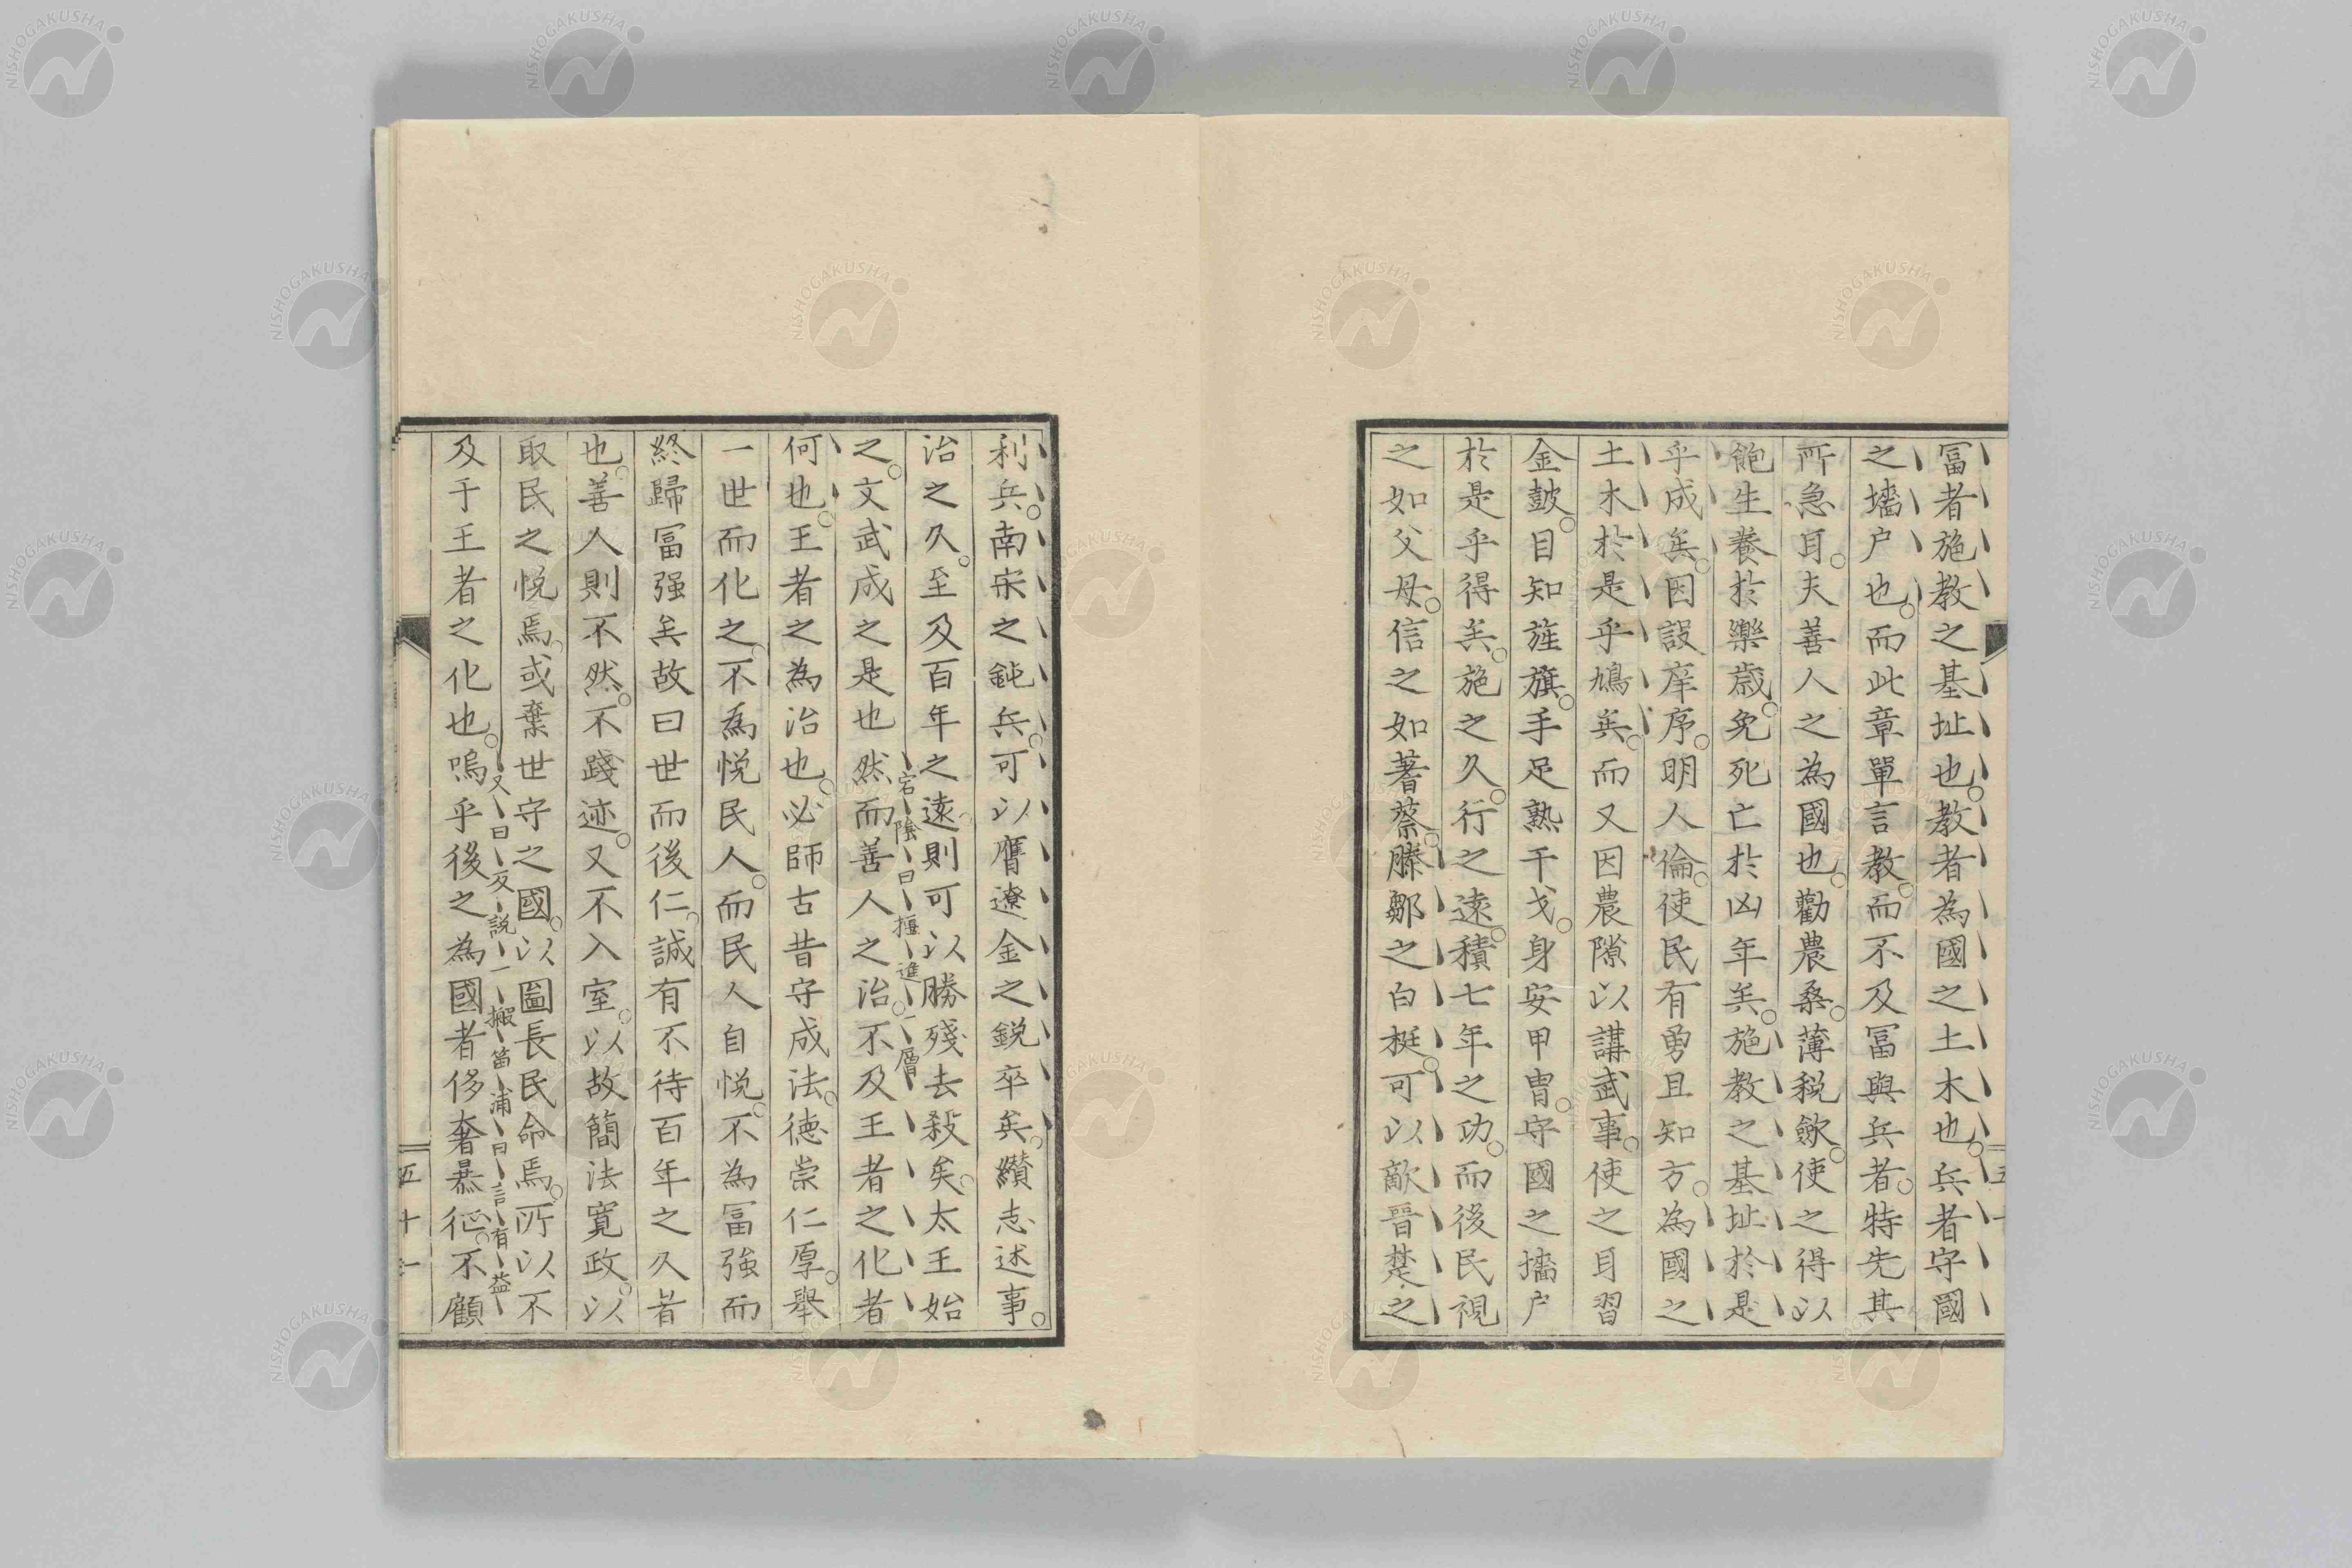 冨者施教之基址也。教者為國之土木也。兵者守國
之墻户也。而此章單言教。而不及冨與兵者。特先其
所急耳。夫善人之為國也。勸農桑。薄税歛。使之得以
飽生養於樂歳。免死亡於凶年矣。施教之基址於是
乎成矣。因設庠序。明人倫。使民有勇且知方。為國之
土木於是乎鳩矣。而又因農隙以講武事。使之耳習
金皷。目知旌旗。手足熟干戈。身安甲冑。守國之墻户
於是乎得矣。施之久。行之遠。積七年之功。而後民視
之如父母。信之如蓍蔡。滕鄒之白梃。可以敵晉楚之
利兵。南宋之鈍兵。可以膺遼金之鋭卒矣。纘志述事。
治之久。至及百年之遠。則可以勝殘去殺矣。太王始
宕陰曰推進一層
之。文武成之是也然而善人之治。不及王者之化者
何也。王者之為治也。必師古昔守成法。德崇仁厚。舉
一世而化之。不為悦民人。而民人自悦。不為冨強而
終歸冨强矣故曰世而後仁。誠有不待百年之久者
也。善人則不然。不踐迹。又不入室。以故簡法寛政。以
取民之悦焉。或棄世守之國。以圖長民命焉。所以不
又曰反説一搬笛浦曰言有益
及于王者之化也。嗚乎後之為國者侈奢暴征。不顧
五十一